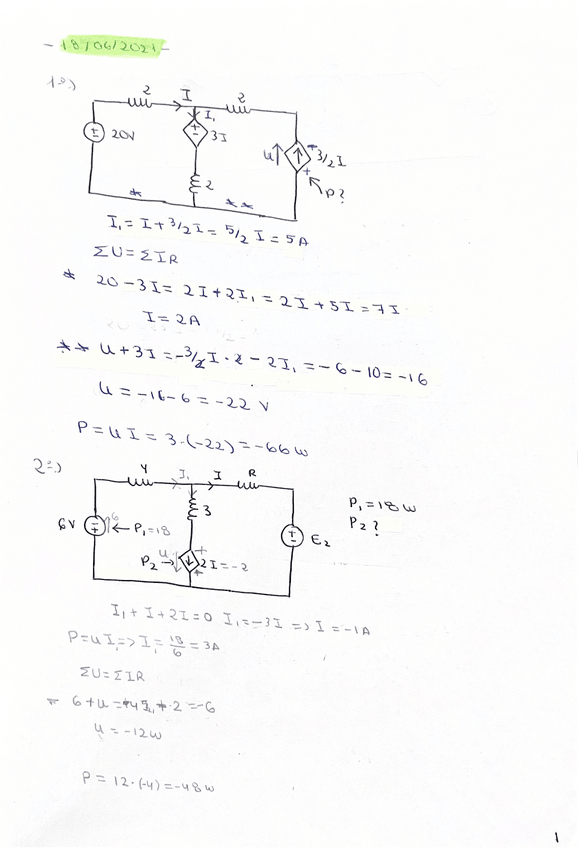 - 18/06/2021 -
1º)
2 I 2
I₁
20V 3I u 3/2 I
2 P?
* **
I₁ = I + 3/2 I = 5/2 I = 5A
ΣU = ΣIR
* 20 - 3I = 2I + 2I₁ = 2I + 5I = 7I
I = 2A
** u + 3I = -3/2 I · 2 - 2I₁ = -6 - 10 = -16
u = -16 - 6 = -22 V
P = u I = 3·(-22) = -66 w
2º)
4 I₁ I R
P₁ = 18 w
P₂ ?
6V 6 ← P₁ = 18 3 E₂
P₂ → u 2I = -2
I₁ + I + 2I = 0 I₁ = -3I => I = -1A
P = u I₁ => I₁ = 18/6 = 3A
ΣU = ΣIR
6 + u = · 2 = -6
u = -12w
P = 12·(-4) = -48 w
1